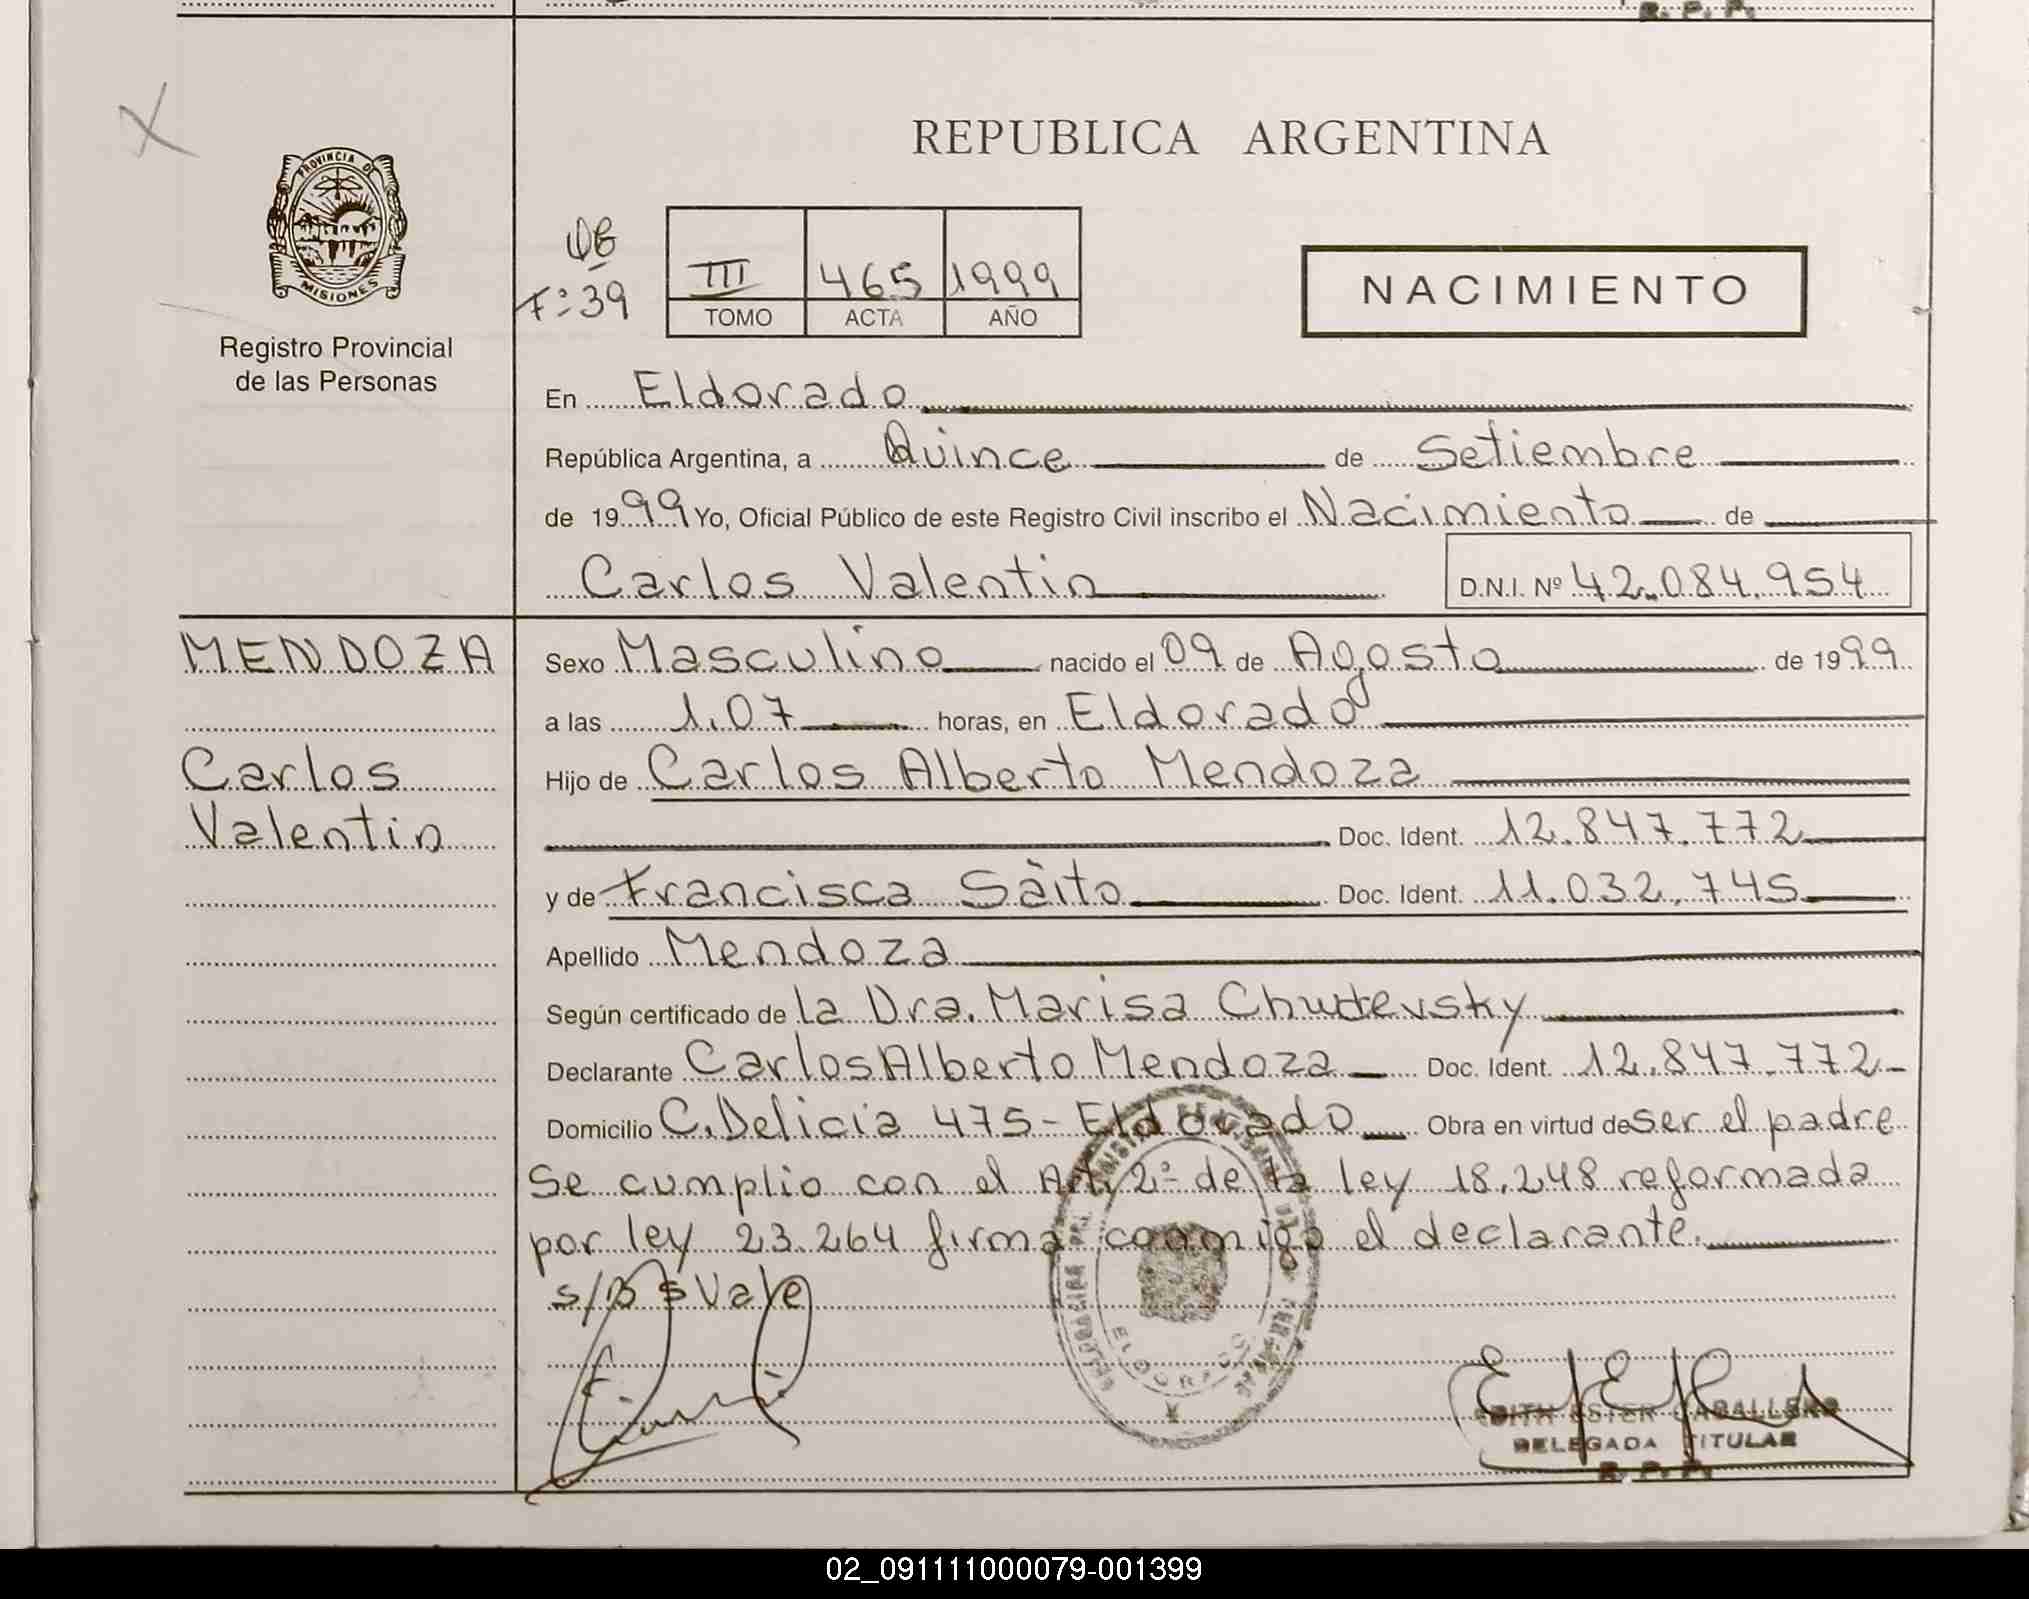 R. P. P.
REPUBLICA ARGENTINA
PROVINCIA DE
MISIONES
Registro Provincial
de las Personas
F:39
III 465 1999
TOMO ACTA AÑO
NACIMIENTO
En Eldorado
República Argentina, a Quince de Setiembre
de 1999 Yo, Oficial Público de este Registro Civil inscribo el Nacimiento de
Carlos Valentin D.N.I. Nº 42.084.954
MENDOZA
Carlos
Valentin
Sexo Masculino nacido el 09 de Agosto de 1999
a las 1.07 horas, en Eldorado
Hijo de Carlos Alberto Mendoza
Doc. Ident. 12.847.772
y de Francisca Sàito Doc. Ident. 11.032.745
Apellido Mendoza
Según certificado de la Dra. Marisa
Declarante Carlos Alberto Mendoza Doc. Ident. 12.847.772
Domicilio C. Delicia 475 - Eldorado Obra en virtud de ser el padre
Se cumplio con el Art. 2º de la ley 18.248 reformada
por ley 23.264 firma conmigo el declarante.
Vale
ELDORADO
EDITH ESTER CABALLERO
DELEGADA TITULAR
R. P. P.
02_091111000079-001399